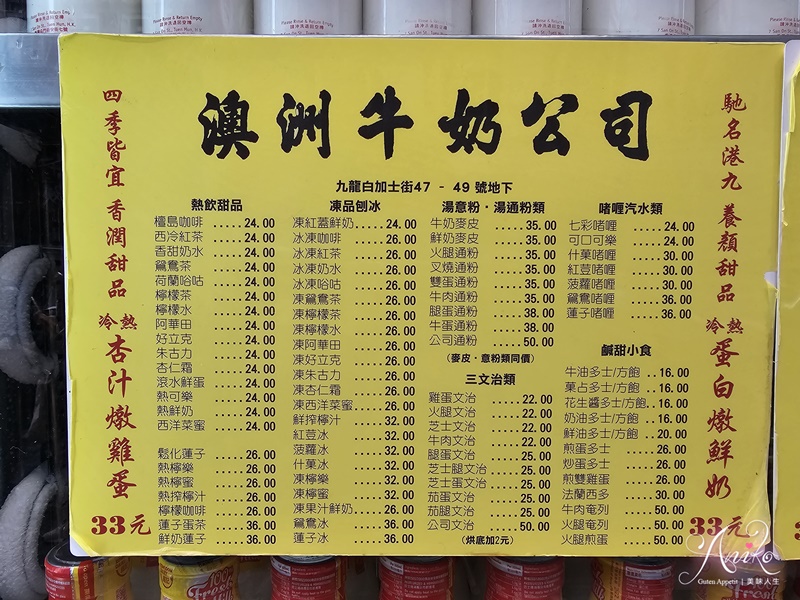 Please Rinse & Return Empty
請沖洗退回空樽
澳洲牛奶公司
九龍白加士街47 - 49 號地下
四季皆宜 香潤甜品
冷熱 杏汁燉雞蛋
33元
熱飲甜品
檀島咖啡 .....24.00
西冷紅茶 .....24.00
香甜奶水 .....24.00
鴛鴦茶 .....24.00
荷蘭哈咕 .....24.00
檸檬茶 .....24.00
檸檬水 .....24.00
阿華田 .....24.00
好立克 .....24.00
朱古力 .....24.00
杏仁霜 .....24.00
滾水鮮蛋 .....24.00
熱可樂 .....24.00
熱鮮奶 .....24.00
西洋菜蜜 .....24.00
鬆化蓮子 .....26.00
熱檸樂 .....26.00
熱檸蜜 .....26.00
熱搾檸汁 .....26.00
檸檬咖啡 .....26.00
蓮子蛋茶 .....36.00
鮮奶蓮子 .....36.00
凍品刨冰
凍紅蓋鮮奶.....24.00
冰凍咖啡 .....26.00
冰凍紅茶 .....26.00
冰凍奶水 .....26.00
冰凍哈咕 .....26.00
凍鴛鴦茶 .....26.00
凍檸檬茶 .....26.00
凍檸檬水 .....26.00
凍阿華田 .....26.00
凍好立克 .....26.00
凍朱古力 .....26.00
凍杏仁霜 .....26.00
凍西洋菜蜜.....26.00
鮮搾檸汁 .....32.00
紅荳冰 .....32.00
菠蘿冰 .....32.00
什菓冰 .....32.00
凍檸樂 .....32.00
凍檸蜜 .....32.00
凍果汁鮮奶.....36.00
鴛鴦冰 .....36.00
蓮子冰 .....36.00
湯意粉・湯通粉類
牛奶麥皮 .....35.00
鮮奶麥皮 .....35.00
火腿通粉 .....35.00
叉燒通粉 .....35.00
雙蛋通粉 .....35.00
牛肉通粉 .....35.00
腿蛋通粉 .....38.00
牛蛋通粉 .....38.00
公司通粉 .....50.00
(麥皮・意粉類同價)
三文治類
雞蛋文治 .....22.00
火腿文治 .....22.00
芝士文治 .....22.00
牛肉文治 .....22.00
腿蛋文治 .....25.00
芝士腿文治 .....25.00
芝士蛋文治 .....25.00
茄蛋文治 .....25.00
茄腿文治 .....25.00
公司文治 .....50.00
(烘底加2元)
啫喱汽水類
七彩啫喱 .....24.00
可口可樂 .....24.00
什菓啫喱 .....30.00
紅荳啫喱 .....30.00
菠蘿啫喱 .....30.00
鴛鴦啫喱 .....36.00
蓮子啫喱 .....36.00
鹹甜小食
牛油多士/方飽 ..16.00
菓占多士/方飽 ..16.00
花生醬多士/方飽..16.00
奶油多士/方飽 ..16.00
鮮油多士/方飽 ..20.00
煎蛋多士 .....26.00
炒蛋多士 .....26.00
煎雙雞蛋 .....26.00
法蘭西多 .....30.00
牛肉奄列 .....50.00
火腿奄列 .....50.00
火腿煎蛋 .....50.00
馳名港九 養顏甜品
冷熱 蛋白燉鮮奶
33元
Aniko
Guten Appetit | 美味人生